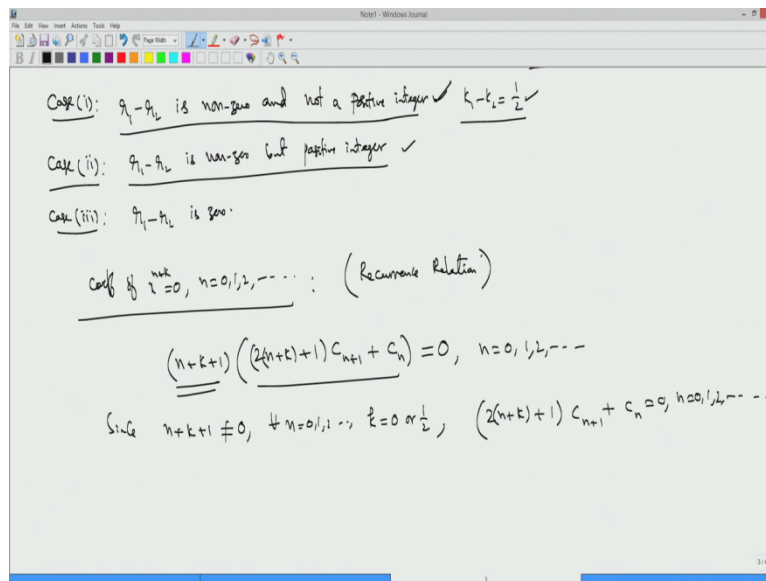 Note1 - Windows Journal
File Edit View Insert Actions Tools Help
Page Width
B I
Case(i): r₁-r₂ is non-zero and not a positive integer ✓ k₁-k₂=1/2 ✓
Case(ii): r₁-r₂ is non-zero but positive integer ✓
Case(iii): r₁-r₂ is zero.
Coeff of x^{n+k}=0, n=0,1,2,----- : (Recurrence Relation)
(n+k+1)((2(n+k)+1)C_{n+1}+C_n)=0, n=0,1,2,---
Since n+k+1≠0, ∀ n=0,1,2.., k=0 or 1/2, (2(n+k)+1)C_{n+1}+C_n=0, n=0,1,2,-----